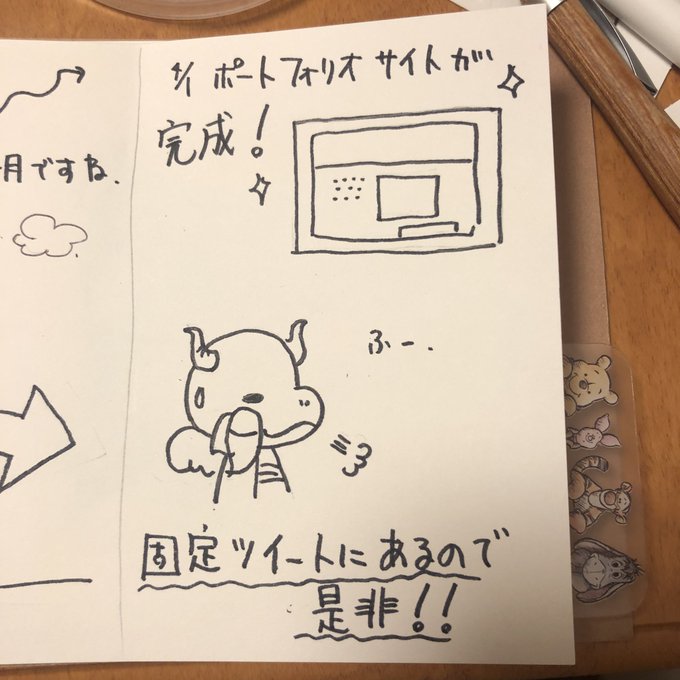 月ですね.
4/1 ポートフォリオサイトが
完成!
ふー.
固定ツイートにあるので
是非!!